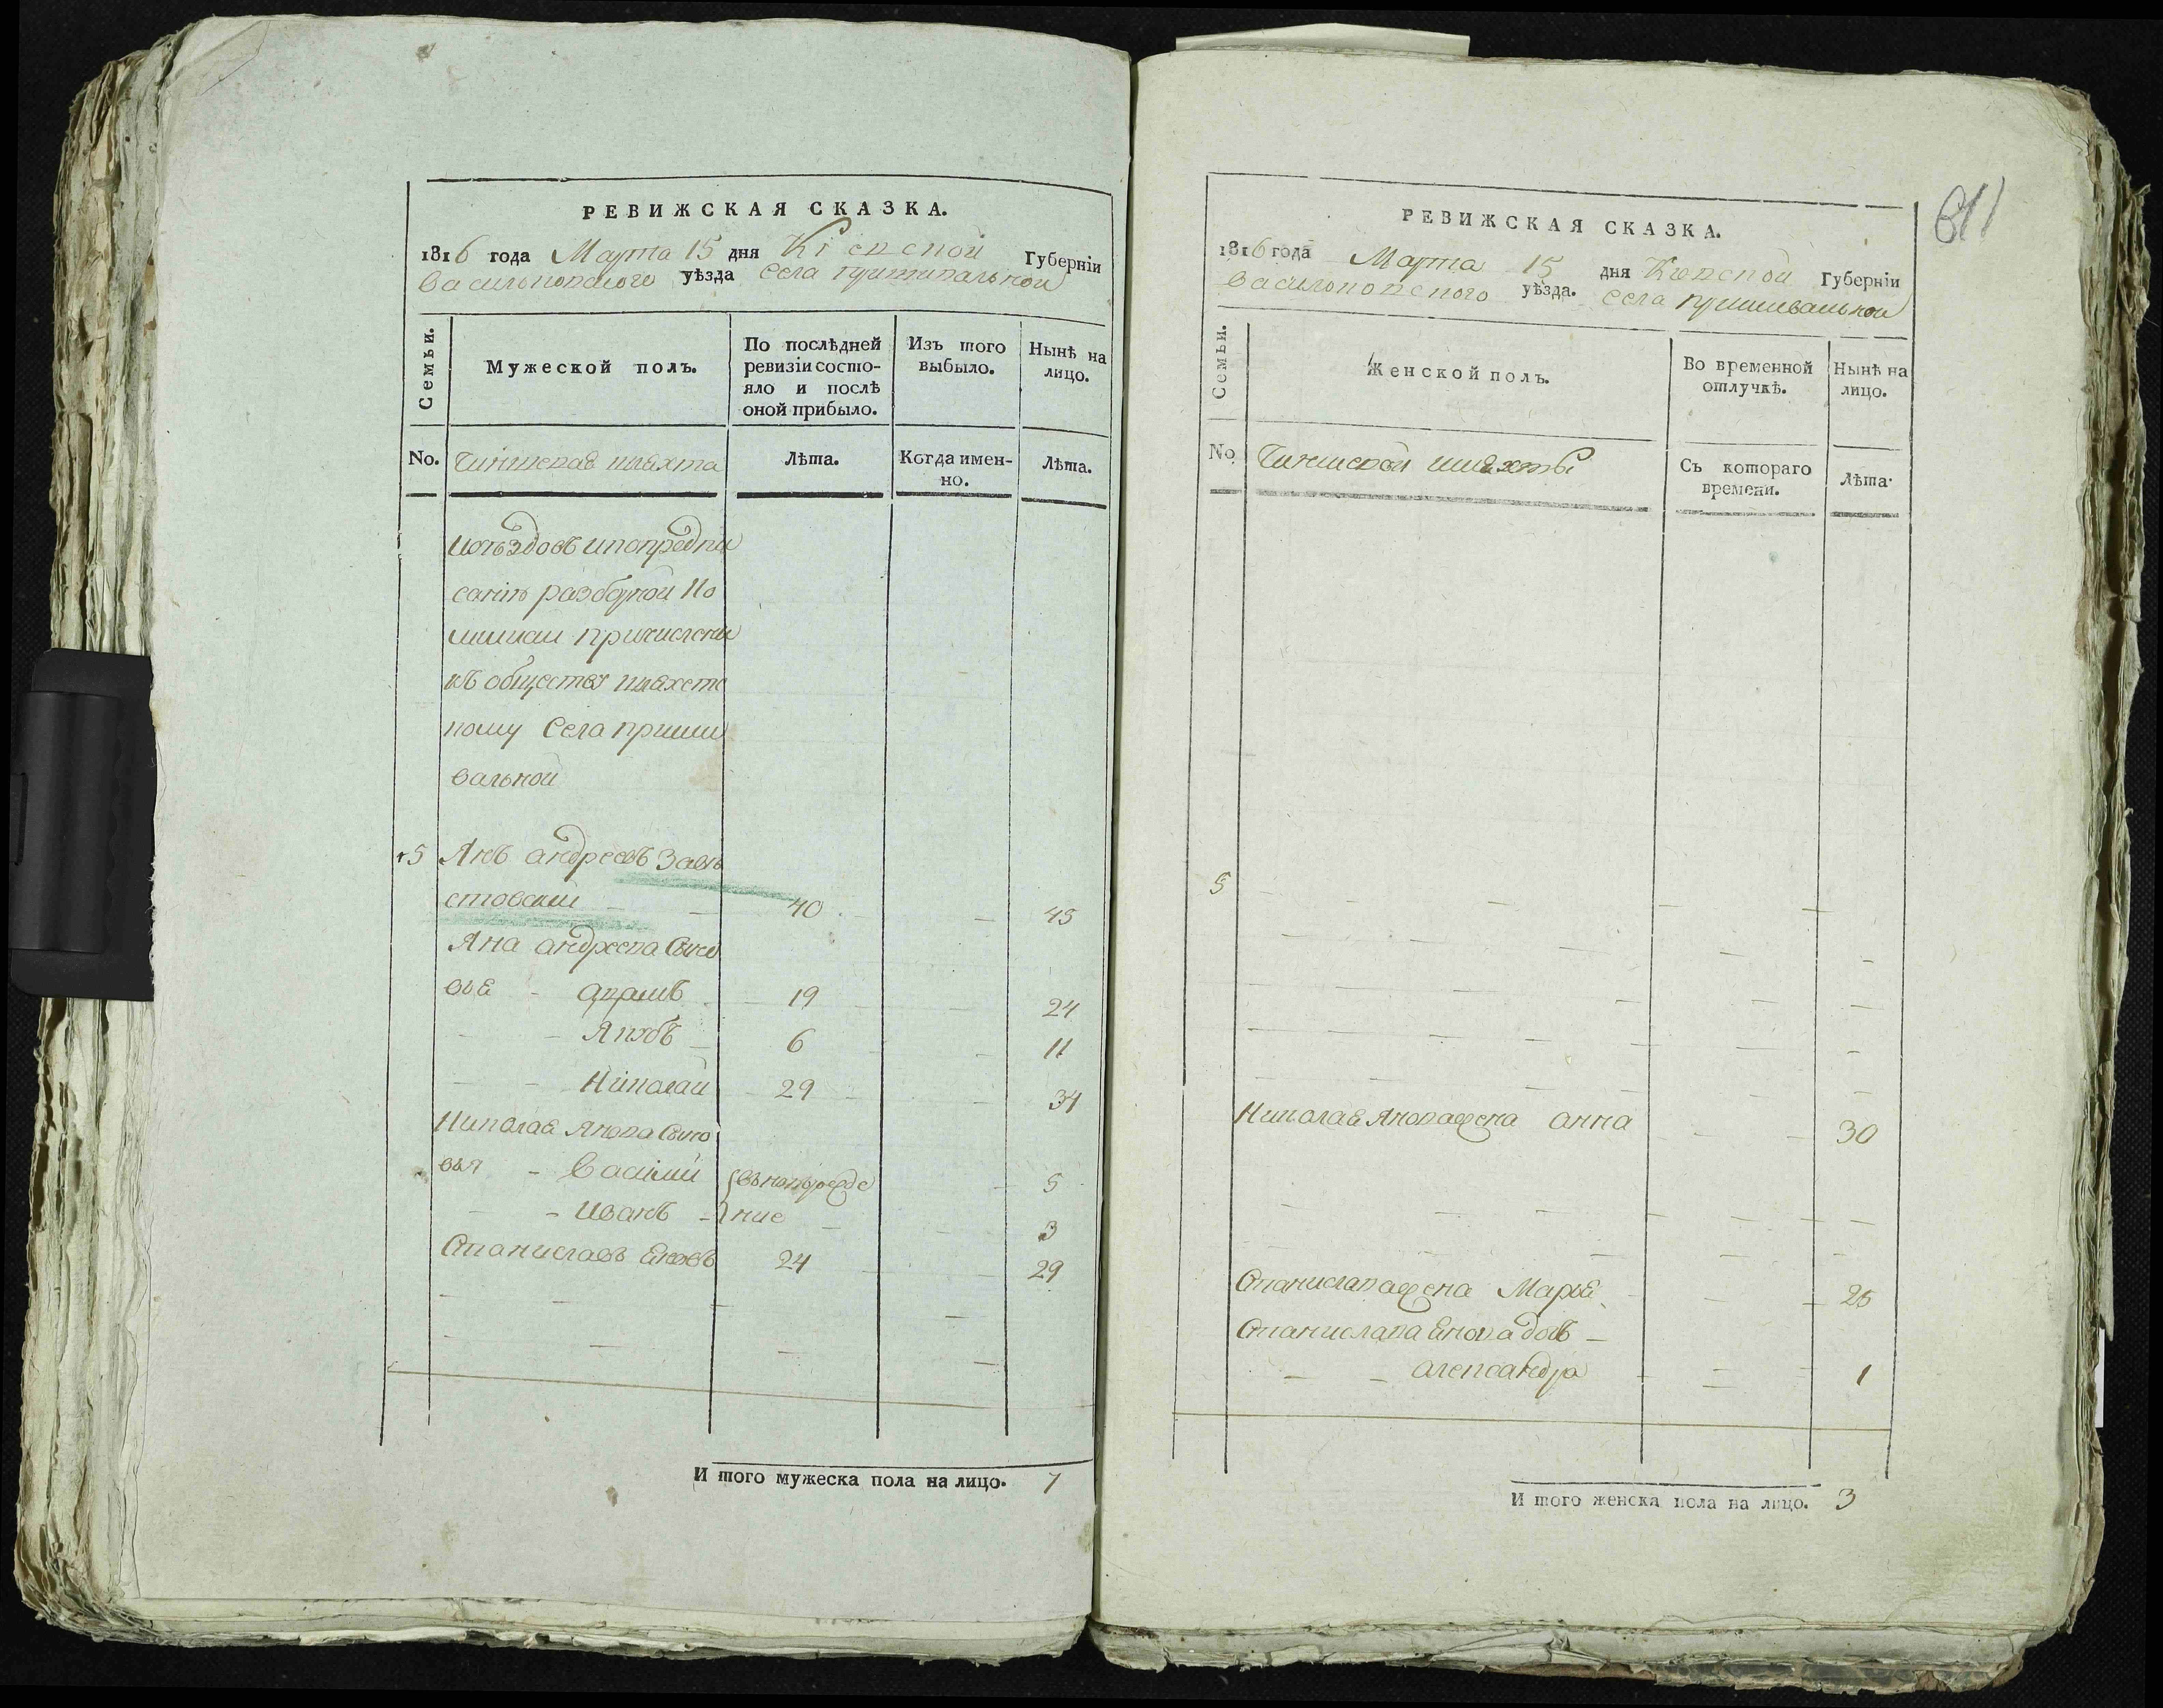 РЕВИЖСКАЯ СКАЗКА.
1816 года Марта 15 дня Кіевской Губерніи
Васильковского уѣзда Села пришивальной
Семьи.
Мужеской полъ.
По послѣдней ревизіи состо-
яло и послѣ
оной прибыло.
Изъ того
выбыло.
Нынѣ на
лицо.
No.
Чиншевая шляхта
Лѣта.
Когда имен-
но.
Лѣта.
предпи
санію разборной Ко
мисіи причислены
къ обществу шляхетс
кому Села приши
вальной
5 Янъ андреевъ Завѣ
стовскій 40 45
Яна андреева Сыно
вья адамъ 19 24
Якобъ 6 11
Николай 29 34
Николая Янова Сыно
вья Василий 5
Иванъ 3
Станиславъ Яновъ 24 29
И того мужеска пола на лицо. 7
611
РЕВИЖСКАЯ СКАЗКА.
1816 года Марта 15 дня Киевской Губерніи
Васильковского уѣзда. Села пришивальной
Семьи.
Женской полъ.
Во временной
отлучкѣ.
Нынѣ на
лицо.
No
Чиншевой шляхты
Съ котораго
времени.
Лѣта.
5
Николая Янова жена анна 30
Станислава жена Марья 25
Станислава Янова дочь
александра 1
И того женска пола на лицо. 3